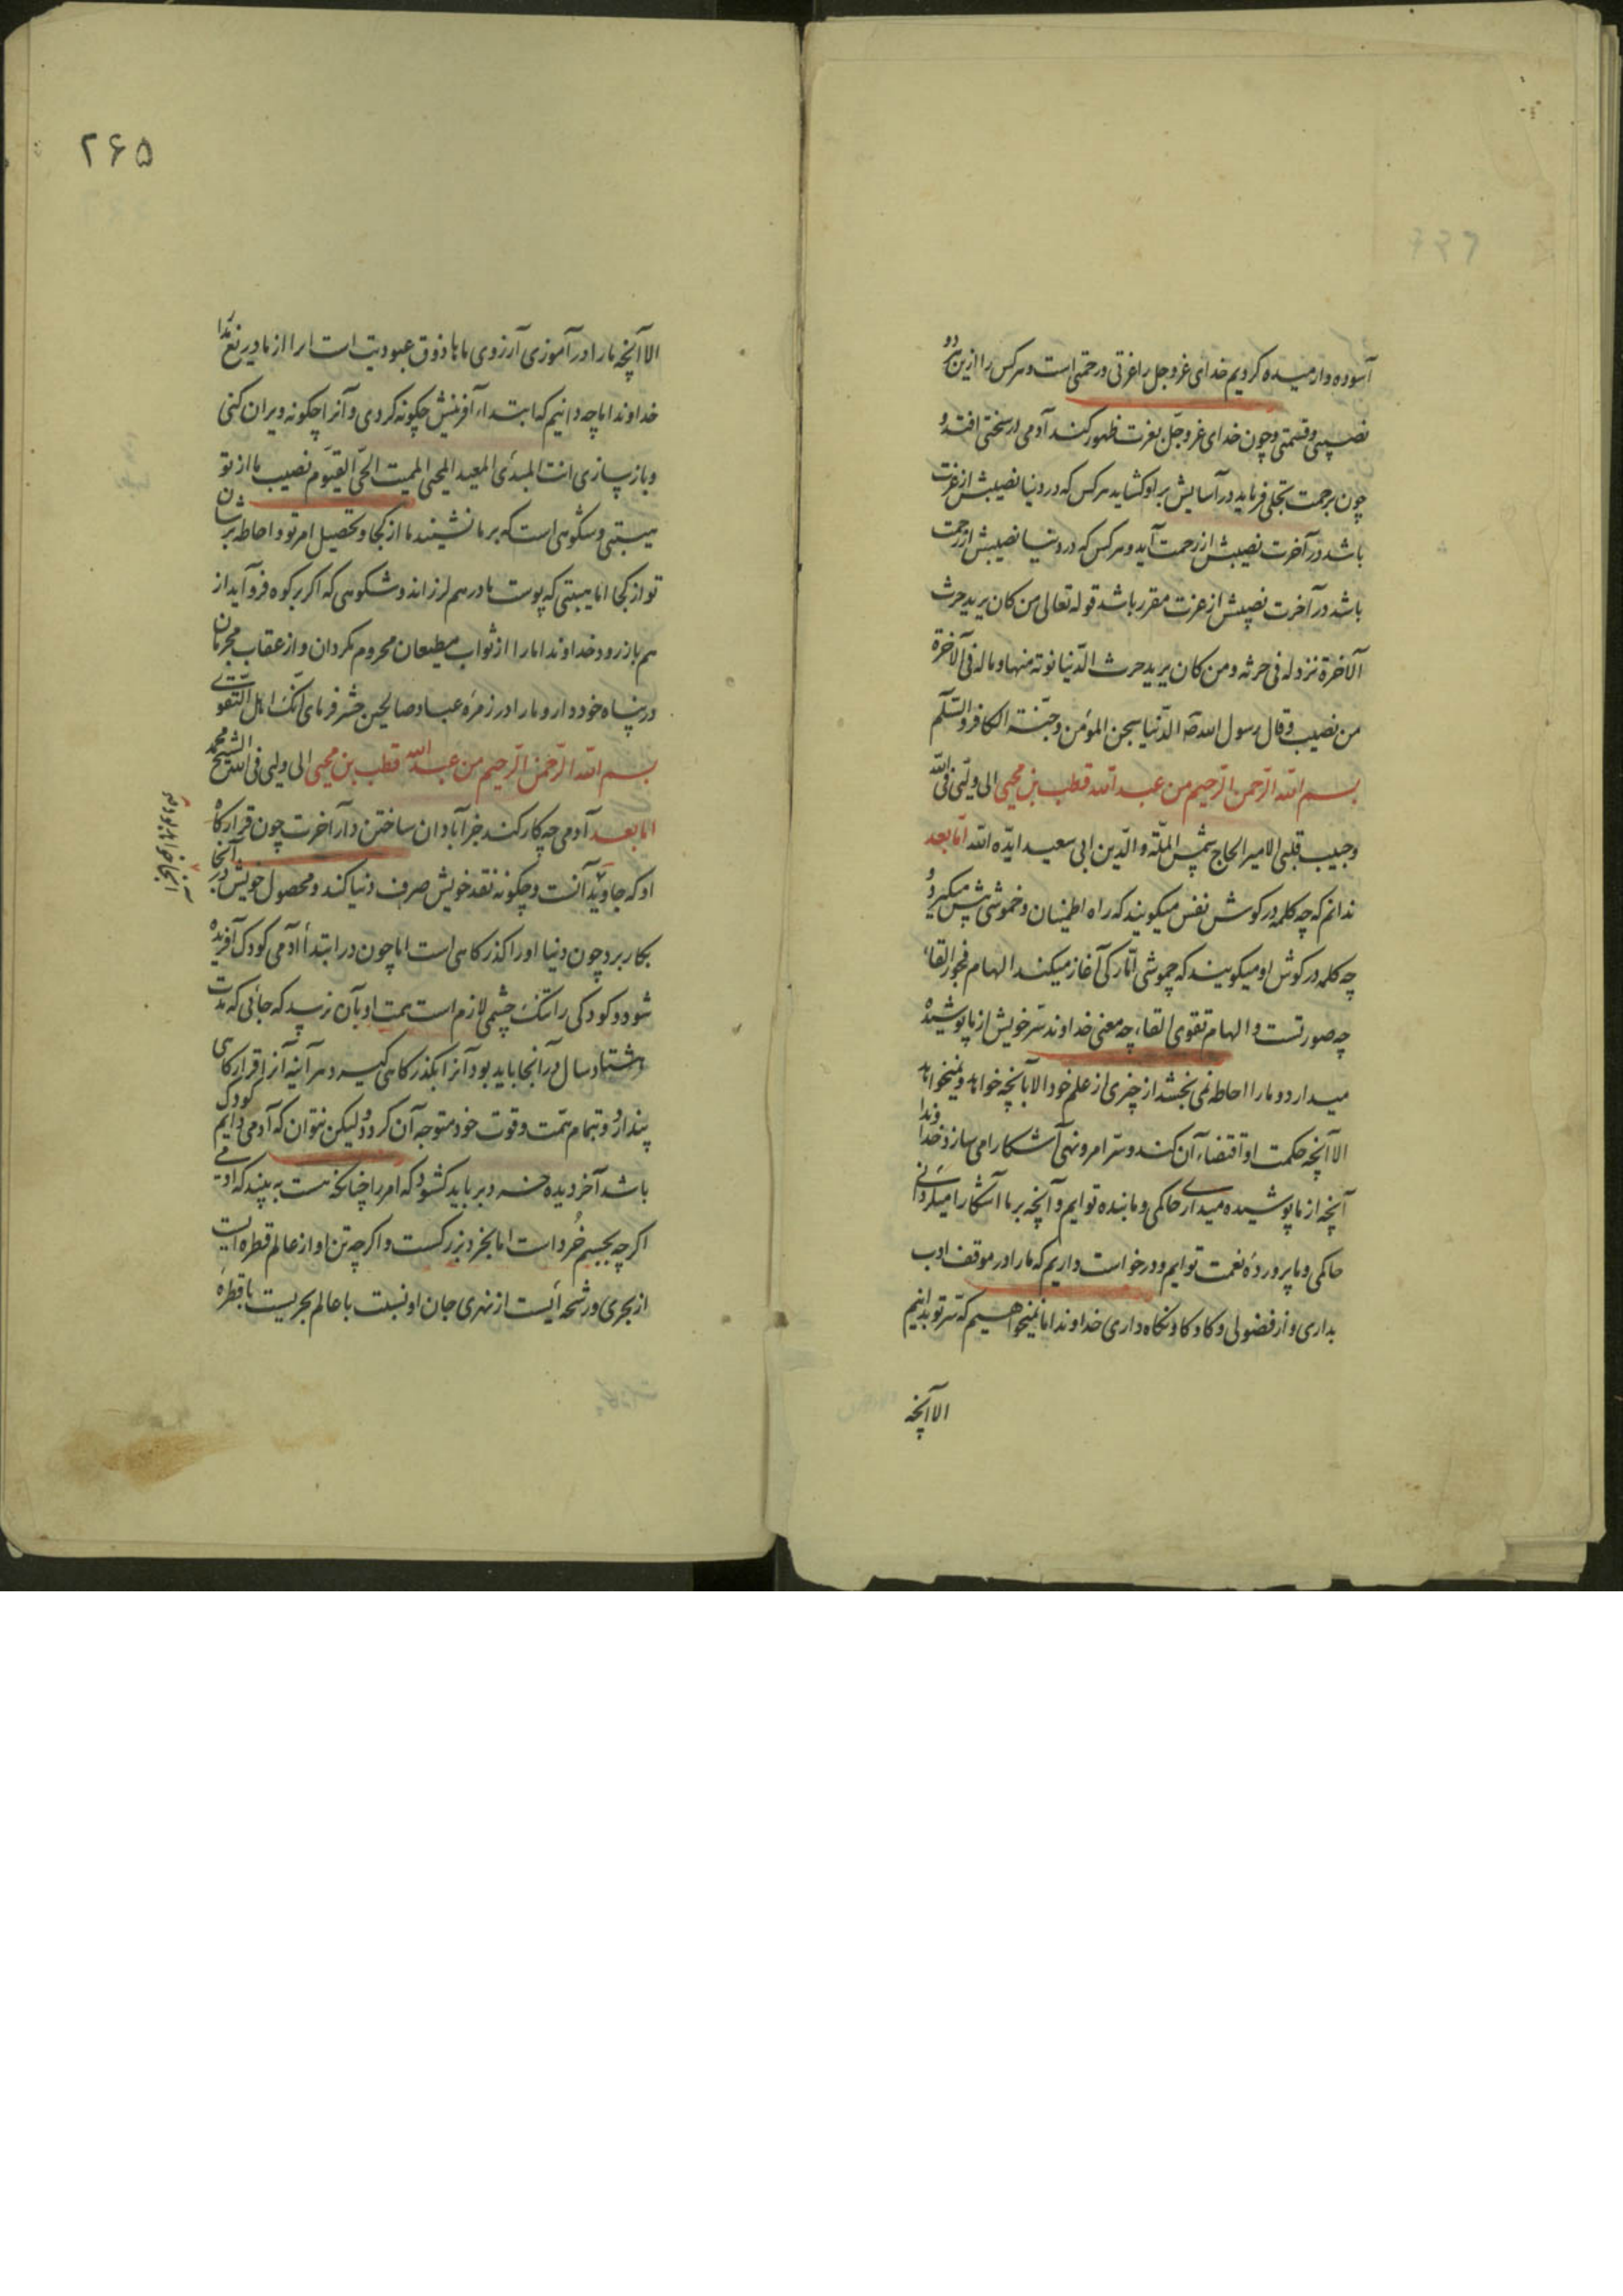 آسوده و آرمیده کردیم خدای عز و جل را عزتی و رحمتی است و هر کس را ازین هر دو
نصیبی و قسمتی و چون خدای عز و جل بعزت ظهور کند آدمی در سختی افتد و
چون برحمت تجلی فرماید در آسایش بر او کشاید هر کس که در دنیا نصیبش از عزت
باشد در آخرت نصیبش از رحمت آید و هر کس که در دنیا نصیبش از رحمت
باشد در آخرت نصیبش از عزت مقرر باشد قوله تعالی من کان یرید حرث
الآخرة نزد له فی حرثه و من کان یرید حرث الدنیا نوته منها و ما له فی الآخرة
من نصیب و قال رسول الله صه الدنیا سجن المؤمن و جنة الکافر والسلم
بسم الله الرحمن الرحیم من عبد الله قطب بن محیی الی ولیی فی الله
و حبیب قلبی الامیر الحاج شمس الملة و الدین ابی سعید ایده الله اما بعد
ندانم که چه کلمه در کوش نفس میکویند که راه اطمینان و خموشی پیش میکیرد و
چه کلمه در کوش او میکویند که چموشی و امّارکی آغاز میکند الهام فجور القاء
چه صورتست و الهام تقوی القاء چه معنی خداوند سرّ خویش از ما پوشیده
میدارد و ما را احاطه نمی بخشد از چیزی از علم خود الا بآنچه خواهد و نمیخواهد
الا آنچه حکمت او اقتضاء آن کند و سر امر و نهی آشکارا می سازد خداوندا
آنچه از ما پوشیده میداری حاکمی و ما بنده توایم و آنچه بر ما آشکارا میکردانی
حاکمی و ما پرورده نعمت توایم و درخواست داریم که ما را در موقف ادب
بداری و از فضولی و کاو کاو نکاه داری خداوندا ما نمیخواهیم که سرّ تو بدانیم
الا آنچه
۲۶۵
الا آنچه ما را در آموزی آرزوی ما ها ذوق عبودیت است ارا از ما دریغ مدا
خداوندا ما چه دانیم که ابتداء آفرینش چکونه کردی و آنرا چکونه ویران کنی
و باز بسازی انت المبدئ المعید المحیی الممیت الحی القیوم نصیب ما از تو
هیبتی و شکوهی است که بر ما نشیند ما از کجا و تحصیل امر تو و احاطه بر شان
تو از کجا اما هیبتی که پوست ما در هم لرزاند و شکوهی که اکر بر کوه فرو آید از
هم باز رود خداوندا ما را از ثواب مطیعان محروم مکردان و از عقاب مجرمان
در پناه خود دار و ما را در زمره عباد صالحین حشر فرمای انک اهل التقوی
بسم الله الرحمن الرحیم من عبد الله قطب بن محیی الی ولیی فی الله الشیخ محمد
اما بعد آدمی چه کار کند جز آبادان ساختن دار آخرت چون قرارکاه
او که جاوید آنست و چکونه نقد خویش صرف دنیا کند و محصول خویش در آنجا
بکار برد چون دنیا او را کذرکاهی است اما چون در ابتدا آدمی کودک آفریده
شود و کودکی را تنک چشمی لازم است همت او بآن نرسد که جائی که مدت
هشتاد سال در آنجا باید بود آنرا بکذرکاهی کیرد هر آینه آنرا قرارکاهی
پندارد و بتمام همت و قوت خود متوجه آن کردد و لیکن نتوان که آدمی دایم کودک
باشد آخر دیده خرد بر باید کشود که امر را چنانکه هست به بیند که آدمی
اکر چه بجسم خُرد است اما بخرد بزرکست و اکر چه تن او از عالم قطره ایست
از بحری و رشحه ایست از نهری جان او نسبت با عالم بحریست با قطره